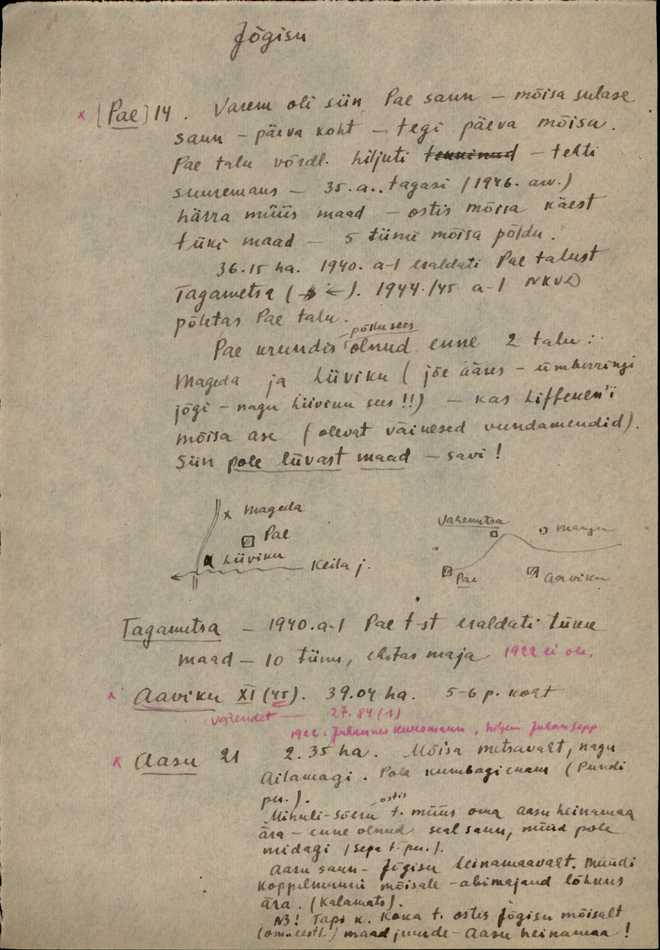 Jõgisu
x [Pae] 14. Varem oli siin Pae saun – mõisa sulase
saun – päeva koht – tegi päeva mõisa.
Pae talu võrdl. hiljuti – tehti
suuremaks – 35.a. tagasi (1946.
härra müüs maad – ostis mõisa käest
tüki maad – 5 tiinu mõisa põldu.
36.15 ha. 1940. a-l eraldati Pae talust
Tagametsa ( ). 1944./45 a-l NKVD
põletas Pae talu.
põllu sees
Pae krundis olnud enne 2 talu:
Mageda ja Liiviku (jõe ääres – ümberringi
jõgi – nagu Liiviku sees!!) – kas
mõisa ase (olevat väikesed vundamendid).
Siin pole liivast maad – savi!
x Mageda
Pae
Liiviku
Keila j.
Vahemetsa
Pae
Aaviku
Tagametsa – 1940.a-l Pae t-st eraldati tükk
maad – 10 tiinu, ehitas maja 1922 ei ole.
x Aaviku XI (45). 39.04 ha. 5-6 p. koht
27.84 (1)
1922: Juhannes hiljem Juhan Sepp
x Aasu 21 2.35 ha. Mõisa metsavaht, nagu
Ailamägi. Pole kumbagi enam (Pundi
pu.).
ostis
Mihkli-Sõeru t. müüs oma Aasu heinamaa
ära – enne olnud seal saun, nüüd pole
midagi (Sepa t. pu.).
Aasu saun – Jõgisu heinamaavaht. Müüdi
mõisale – abimajand lõhkus
ära. (Kalamats).
NB! Tapi k. Koka t. ostis Jõgisu mõisalt
maad juurde – Aasu heinamaa!